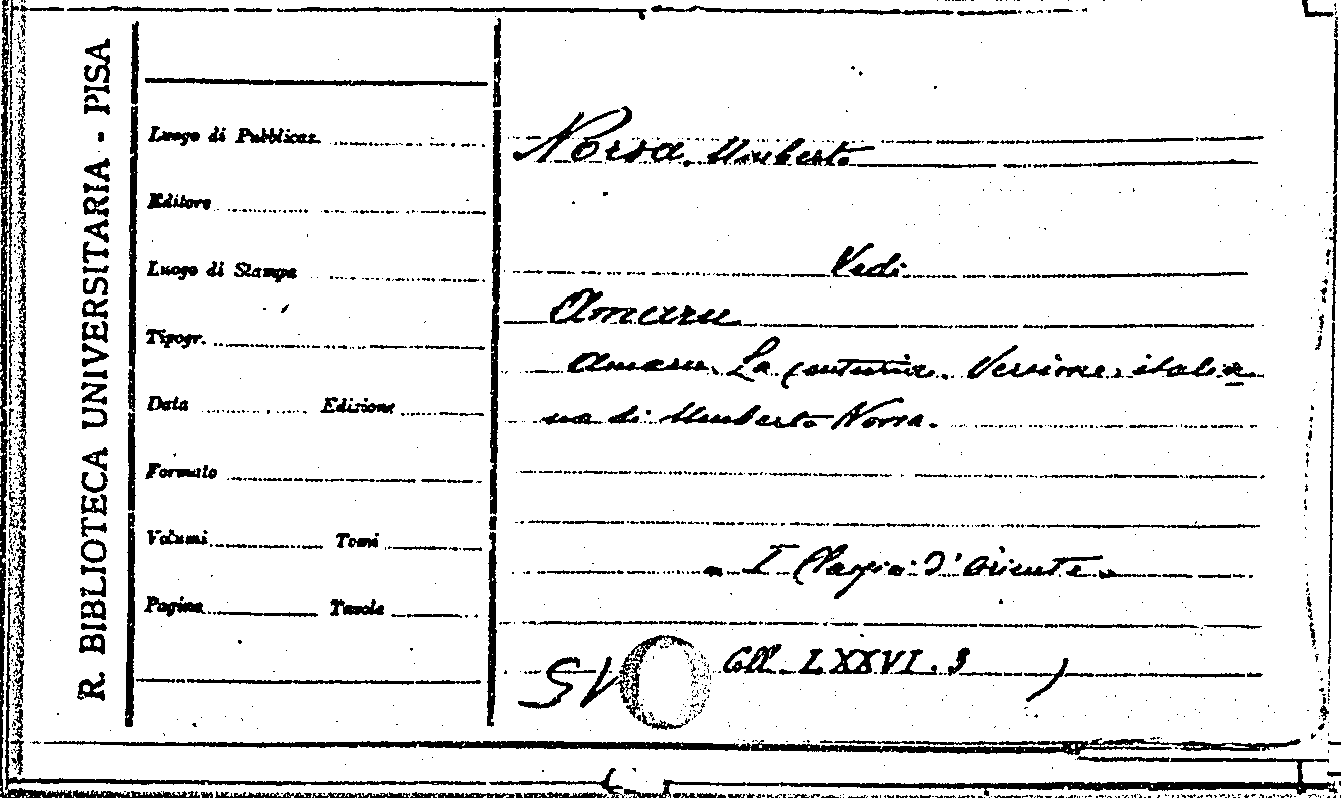 R. BIBLIOTECA UNIVERSITARIA - PISA
Luogo di Pubblicaz.
Editore
Luogo di Stampa
Tipogr.
Data Edizione
Formato
Volumi Tomi
Pagine Tavole
Norsa, Umberto
Vedi
Amaru
Amaru. La centuria. Versione italia
na di Umberto Norsa.
" I Classici d'Oriente "
Coll. LXXVI. 3